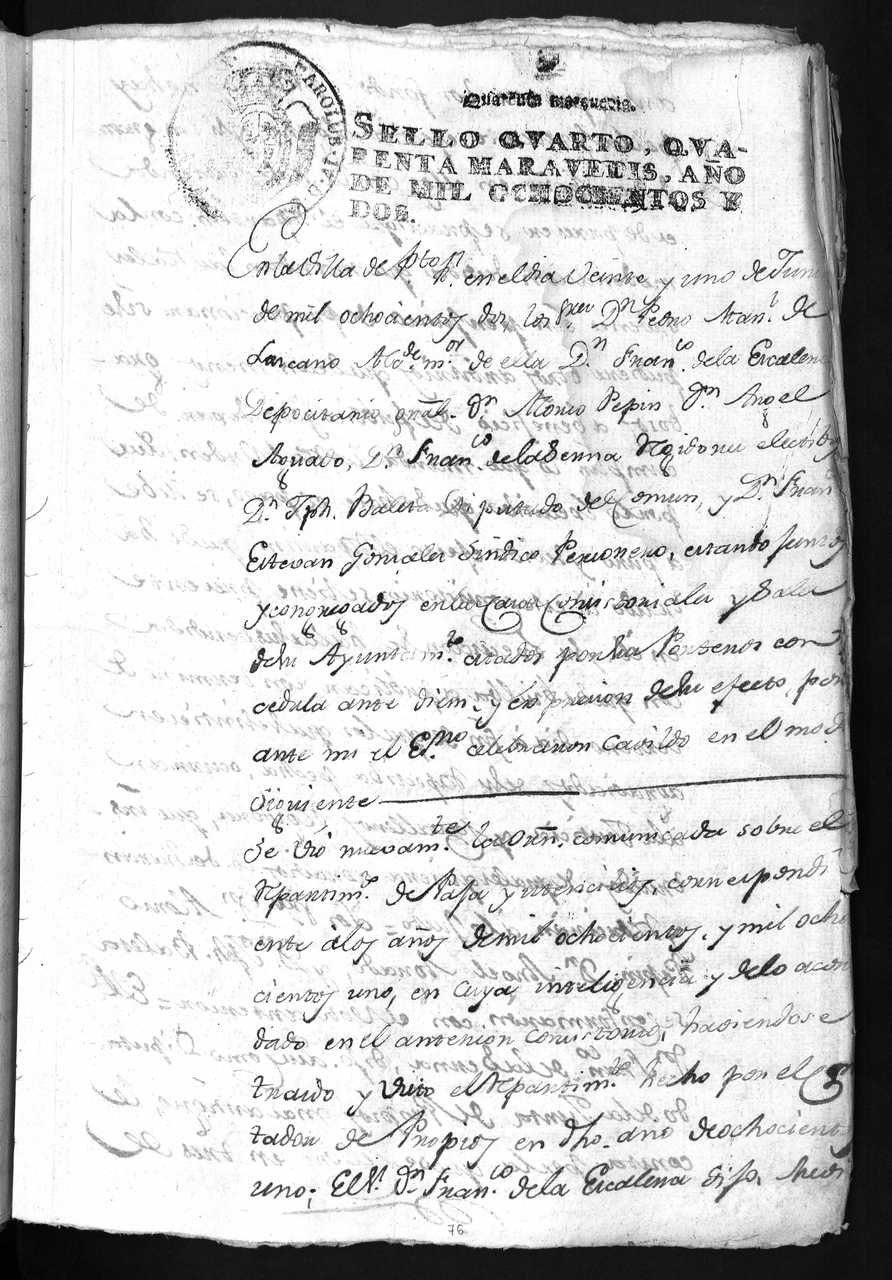 CAROLUS IV D G
Quarenta maravedis.
SELLO QVARTO, QVA-
RENTA MARAVEDIS, AÑO
DE MIL OCHOCIENTOS Y
DOS.
En la Villa de Pto. Rl. en el dia Veinte y uno de Juni
de mil ochocientos dos los Sres. Dn. Pedro Man.l de
Larcano Alcde. mor. de ella Dn. Franco. de la Escalera
Depocitario gral. Dn. Alonso Pepin Dn. Angel
Aguado, Dn. Franco. de la Serna Regidores electibos
Dn. Jph. Balera Diputado del Comun, y Dn. Franco
Estevan Gonzales Sindico Personero, estando juntos
y congregados en las Casas Consistoriales y Sala
de su Ayuntamto. citados por los Porteros con
cedula ante diem, y expresion de su efecto, por
ante mi el Esno. celebraron Cavildo en el modo
siguiente
Se vió nuevamte. la Orn. comunicada sobre el
Repartimto. de Paja y utencilios, correspondi
ente á los años de mil ochocientos, y mil ocho
cientos uno, en cuya inteligencia y de lo acor
dado en el anterior Consistorio, haciendose
traido y visto el Repartimto. hecho por el Con
tador de Propios en dho. año de ochocientos
uno; El Sr. Dn. Franco. de la Escalera dijo,
76